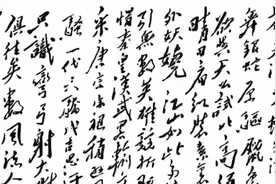 舞銀蛇 原驅
欲與天公試比高 須
晴日 看紅裝素
分外妖嬈 江山如此多
引無數英雄競折
惜秦皇漢武略輸
采 唐宗宋祖 稍遜
騷 一代天驕成吉思汗
只識彎弓射大
俱往矣 數風流人